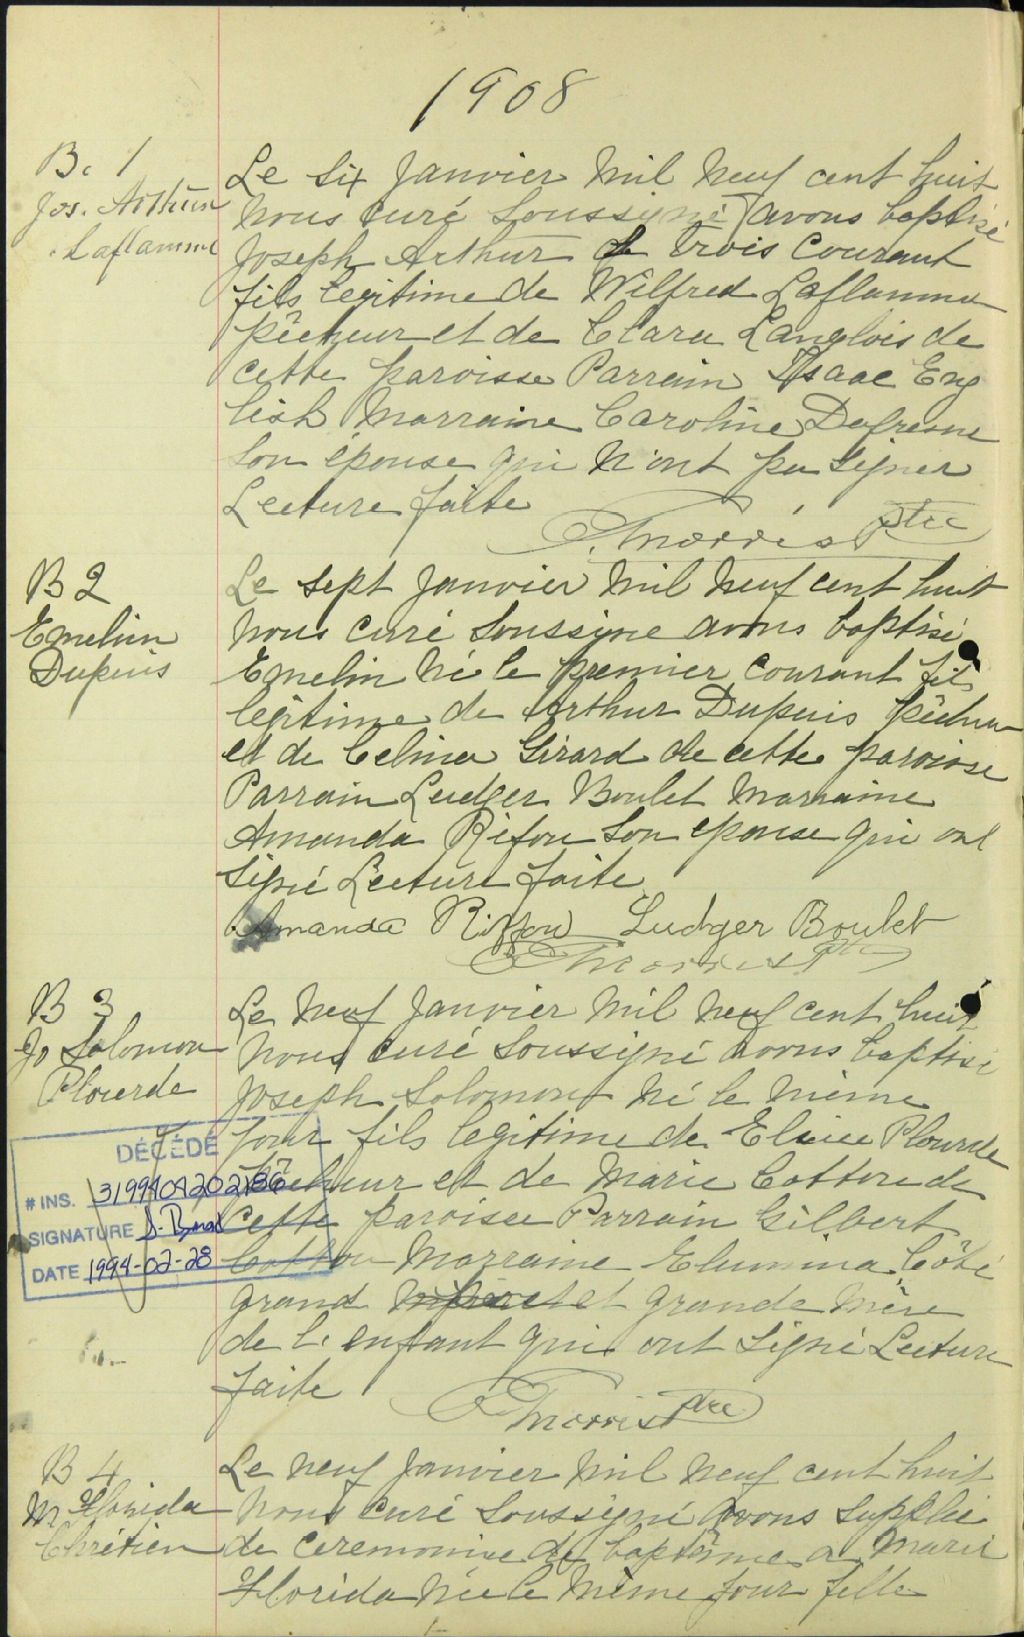 1908
B. 1
Jos. Arthur
Laflamme
Le six Janvier mil neuf cent huit
nous curé soussigné avons baptisé
Joseph Arthur le trois courant
fils legitime de Wilfred Laflamme
pêcheur et de Clara Langlois de
cette paroisse Parrain Isaac Eng
lish Marraine Caroline Dufresne
son épouse qui n'ont pu signer
Lecture faite
Morris Ptre
B 2
Emelien
Dupuis
Le sept Janvier mil neuf cent huit
nous curé soussigne avons baptisé
Emelin né le premier courant fils
legitime de Arthur Dupuis pêcheur
et de Celina Girard de cette paroisse
Parrain Ludger Boulet Marraine
Amanda Rifou son epouse qui ont
signé Lecture faite
Amanda Riffou Ludger Boulet
Morris Ptre
B 3
Js Solomon
Plourde
Le neuf Janvier mil neuf cent huit
nous curé soussigné avons baptisé
Joseph Solomon né le même
jour fils legitime de Elisée Plourde
pêcheur et de Marie Cotton de
cette paroisse Parrain Gilbert
Cotton Marraine Elumina Côté
grand et grande mère
de l'enfant qui ont signé Lecture
faite
Morris Ptre
DÉCÉDÉ
# INS. 3199404202186
SIGNATURE
DATE 1994-02-28
B 4
M Florida
Chrétien
Le neuf Janvier mil neuf cent huit
nous curé soussigné avons supplié
de ceremonie de baptême a Marie
Florida née le même jour fille